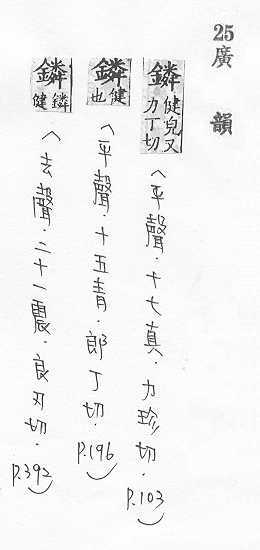 25廣韻
鏻 健皃又力丁切 〈平聲.十七真.力珍切.P.103〉
鏻 健也 〈平聲.十五青.郎丁切.P.196〉
鏻 鏻健 〈去聲.二十一震.良刃切.P.392〉